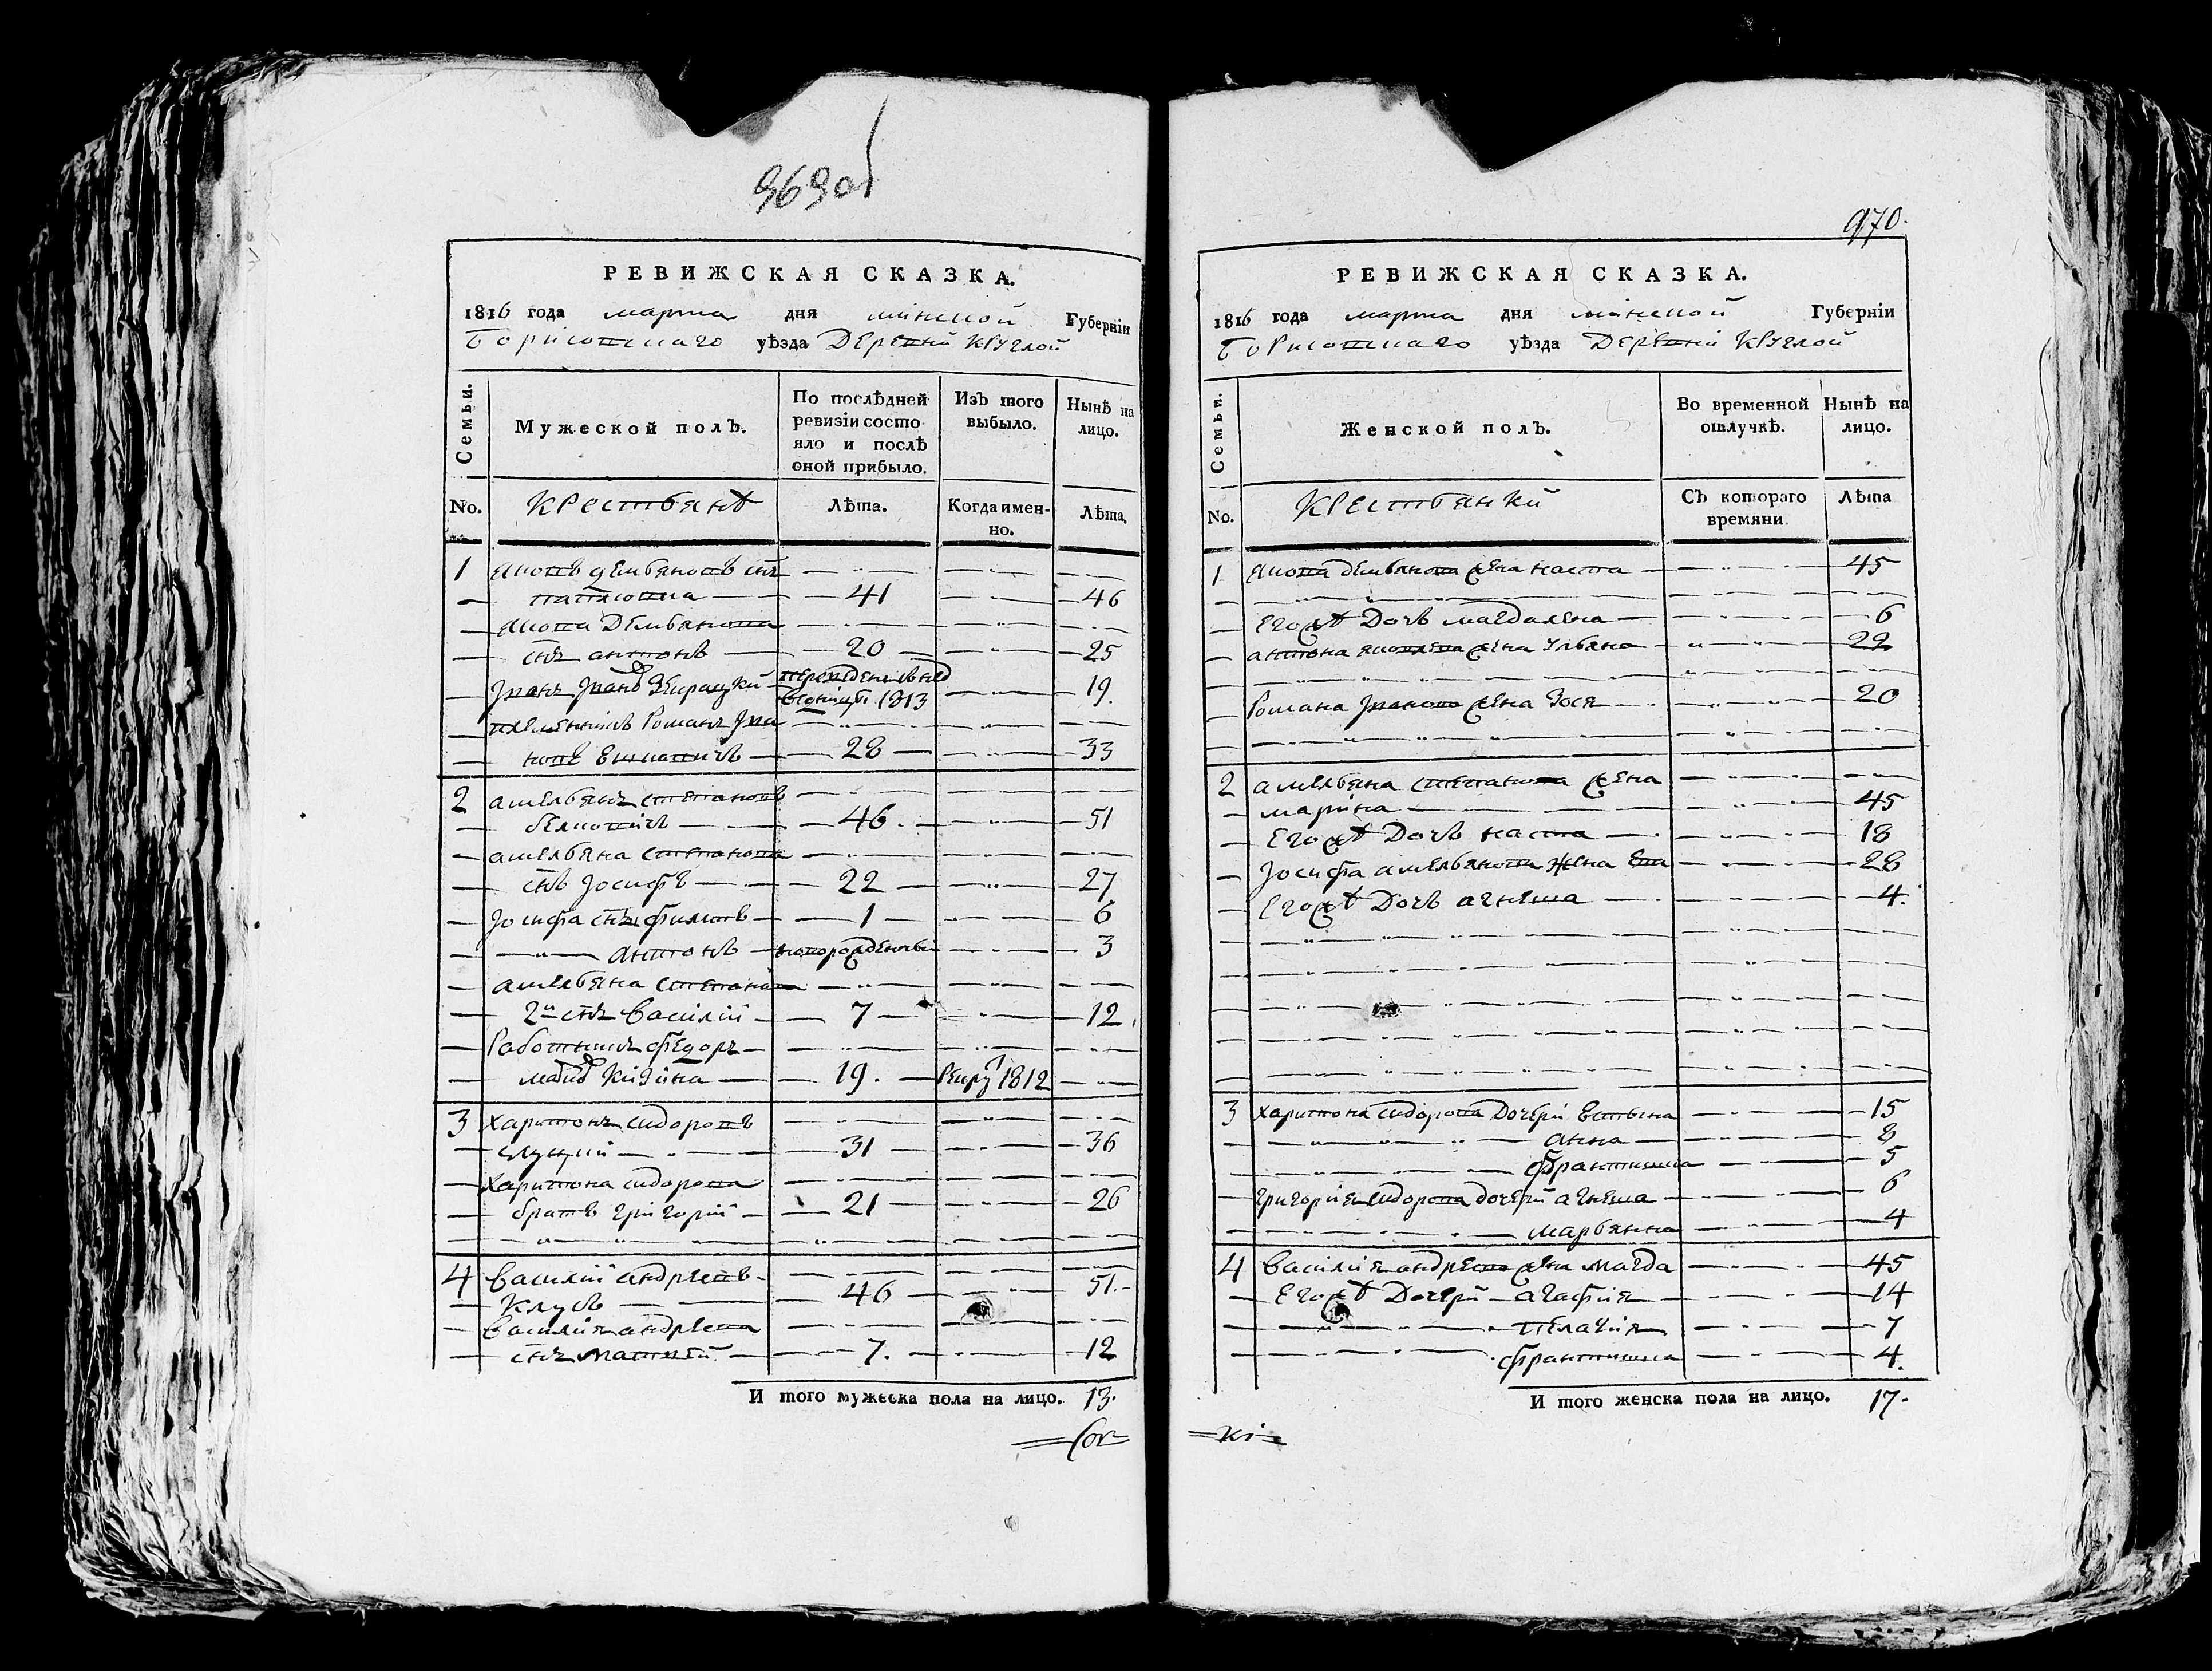 969об
РЕВИЖСКАЯ СКАЗКА.
1816 года марта дня минской Губерніи
Борисовскаго уѣзда Деревни Круглой
Семьи.
Мужеской полъ.
По послѣдней ревизіи состояло и послѣ оной прибыло.
Изъ того выбыло.
Нынѣ на лицо.
No. Крестьянѣ Лѣта. Когда именно. Лѣта,
1 Яковъ Демьяновъ снъ
41 46
Якова Демьянова
снъ антонъ 20 25
Іванъ 1813 19.
племенникъ Романъ Іва
новъ 28 33
2 амельянъ степановъ
46. 51
амельяна степанова
снъ Іосифъ 22 27
Іосифа снъ филипъ 1 6
антонъ новорожденный 3
амельяна степанова
2й снъ василий 7 12.
Работникъ федоръ
19. Рекру 1812
3 харитонъ сидоровъ
слуцкий 31 36
харитона сидорова
братъ григорий 21 26
4 василий андреевъ
Клусъ 46 51.
василия андреева
снъ матвей 7. 12
И того мужеска пола на лицо. 13.
970.
РЕВИЖСКАЯ СКАЗКА.
1816 года марта дня минской Губерніи
Борисовскаго уѣзда Деревни Круглой
Семьи.
Женской полъ.
Во временной отлучкѣ.
Нынѣ на лицо.
No. Крестьянки Съ котораго времяни. Лѣта
1 Якова Демьянова жена наста 45
Егожъ Дочь магдалена 6
антона яковлева жена Ульяна 22
Романа Іванова жена Зося 20
2 амельяна степанова жена
марина 45
Егожъ Дочь наста 18
Іосифа амельянова жена Ева 28
Егожъ Дочь агнеша 4.
3 харитона сидорова Дочери Естьина 15
анна 8
франтишка 5
григория сидорова дочери агнеша 6
марьянна 4
4 василия андреева жена магда 45
Егожъ Дочери агафия 14
пелагия 7
франтишка 4.
И того женска пола на лицо. 17.